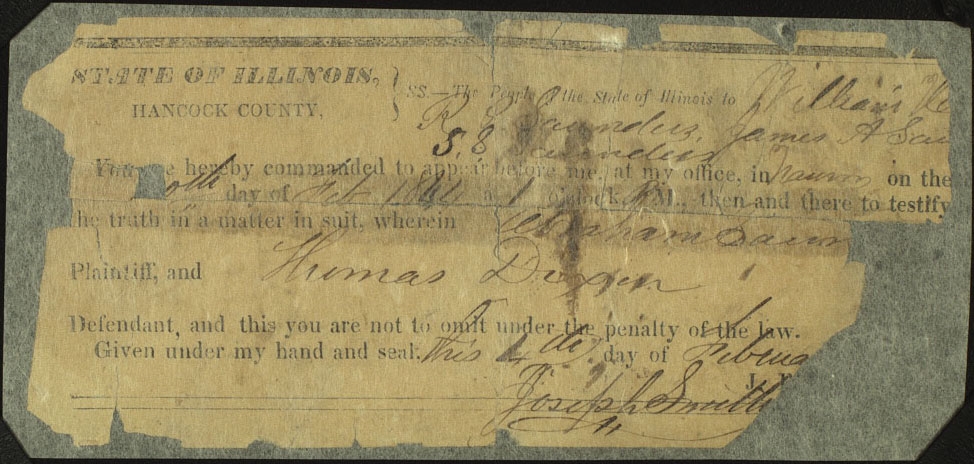 STATE OF ILLINOIS, } SS.—The People of the State of Illinois to William
HANCOCK COUNTY,
R. S. Saunders, James A
S. E Saunders
You are hereby commanded to appear before me, at my office, in on the
day of Feb 184 at 1 o'clock, P.M., then and there to testify
the truth in a matter in suit, wherein Abraham
Plaintiff, and Thomas Dixon
Defendant, and this you are not to omit under the penalty of the law.
Given under my hand and seal. this 4th day of Februa
Joseph Smith J. P